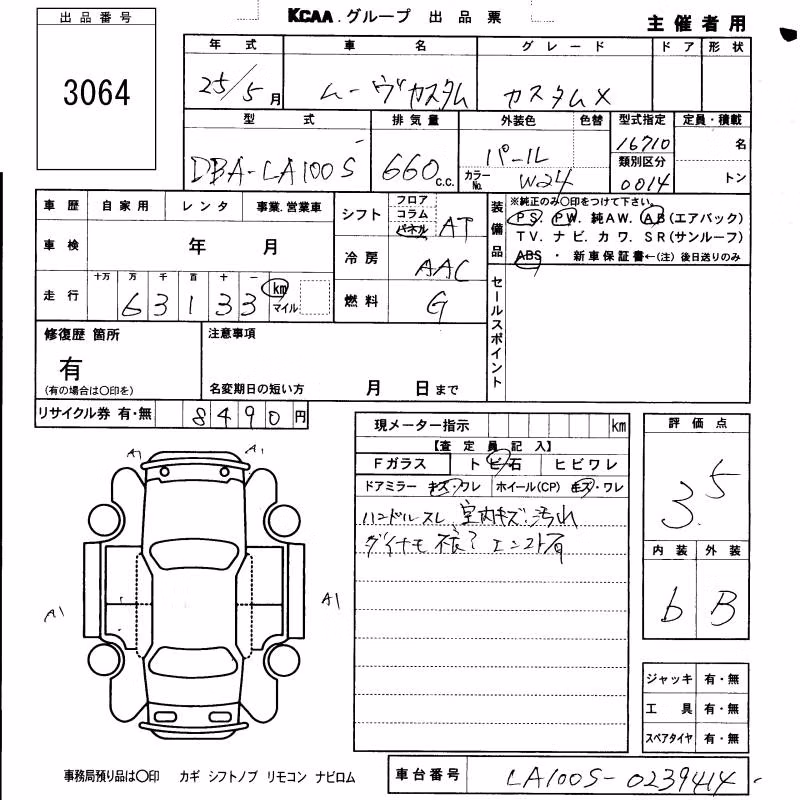 KCAA.グループ 出品票
主催者用
出品番号
3064
年式 車名 グレード ドア 形状
25/5月 ムーヴカスタム カスタムX
型式 排気量 外装色 色替 型式指定 定員・積載
DBA-LA100S 660c.c. パール 16710 名
カラーNo. W24 類別区分 0014 トン
車歴 自家用 レンタ 事業.営業車
車検 年 月
走行 十万 万 千 百 十 一 km マイル
63133
シフト フロア コラム パネル AT
冷房 AAC
燃料 G
装備品
※純正のみ〇印をつけて下さい。
PS.PW.純AW.AB(エアバック)
TV.ナビ.カワ.SR(サンルーフ)
ABS・新車保証書←(注)後日送りのみ
セールスポイント
修復歴 箇所
有
(有の場合は〇印を)
注意事項
名変期日の短い方 月 日まで
リサイクル券 有・無 8490円
現メーター指示 km
【査定員記入】
Fガラス トビ石 ヒビワレ
ドアミラー キズ・ワレ ホイール(CP) キズ・ワレ
ハンドルスレ 室内キズ・汚れ
ダイナモ不良? エンスト有
評価点
3.5
内装 外装
b B
A1 A1
A1 A1
ジャッキ 有・無
工具 有・無
スペアタイヤ 有・無
事務局預り品は〇印 カギ シフトノブ リモコン ナビロム
車台番号 LA100S-0239414